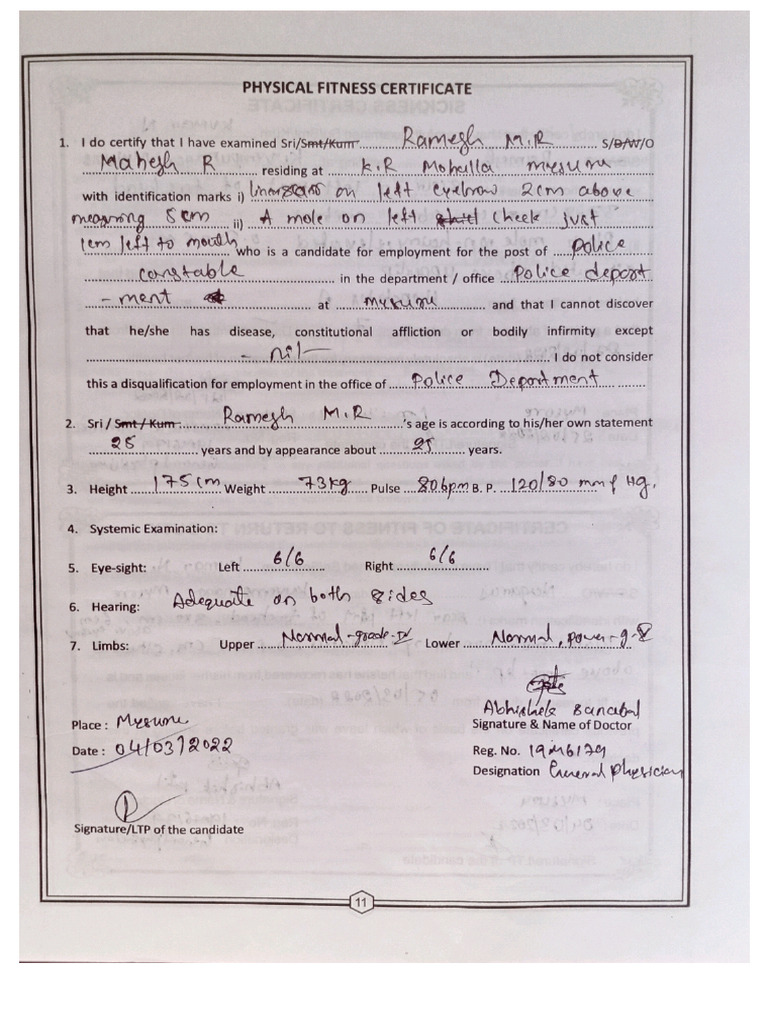 PHYSICAL FITNESS CERTIFICATE
1. I do certify that I have examined Sri/Smt/Kum Ramesh M.R S/D/W/O
Mahesh R residing at K.R Mohulla mysuru
with identification marks i) linearscar on left eyebrow 2cm above
measuring 5cm ii) A mole on left cheek just
1cm left to mouth who is a candidate for employment for the post of police
constable in the department / office Police depart
-ment at mysuru and that I cannot discover
that he/she has disease, constitutional affliction or bodily infirmity except
-nil- I do not consider
this a disqualification for employment in the office of Police Department
2. Sri / Smt / Kum Ramesh M.R 's age is according to his/her own statement
25 years and by appearance about 25 years.
3. Height 175cm Weight 73kg Pulse 80bpm B. P. 120/80 mm of Hg.
4. Systemic Examination:
5. Eye-sight: Left 6/6 Right 6/6
6. Hearing: Adequate on both sides
7. Limbs: Upper Normal-grade-IV Lower Normal, power-g-5
Abhishek Sanabal
Place : Mysuru Signature & Name of Doctor
Date : 04/03/2022 Reg. No. 19M6179
Designation General Physician
Signature/LTP of the candidate
11